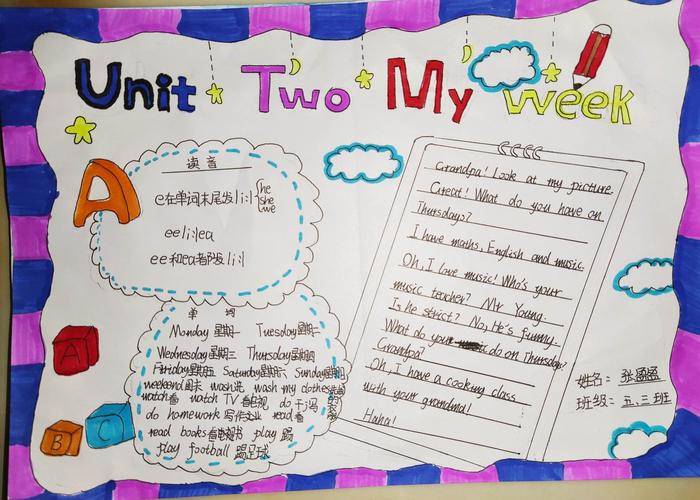 Unit Two My week
A
读音
e在单词末尾发/i:/ he
she
we
ee/i:/ea
ee和ea都发/i:/
单词
Monday 星期一 Tuesday 星期二
Wednesday 星期三 Thursday 星期四
Friday 星期五 Saturday 星期六 Sunday 星期日
weekend 周末 wash 洗 wash my clothes
watch 看 watch TV 看电视 do 干;河
do homework 写作业 read 看
read books 看书 play 踢
play football 踢足球
Grandpa! Look at my picture.
Great! What do you have on
Thursdays?
I have maths, English and music.
Oh, I love music! Who's your
music teacher? Mr Young.
Is he strict? No, He's funny.
What do you do on Thursdays?
Grandpa?
Oh, I have a cooking class
with your grandma!
Haha!
姓名: 张
班级: 五.三班
A
B
C